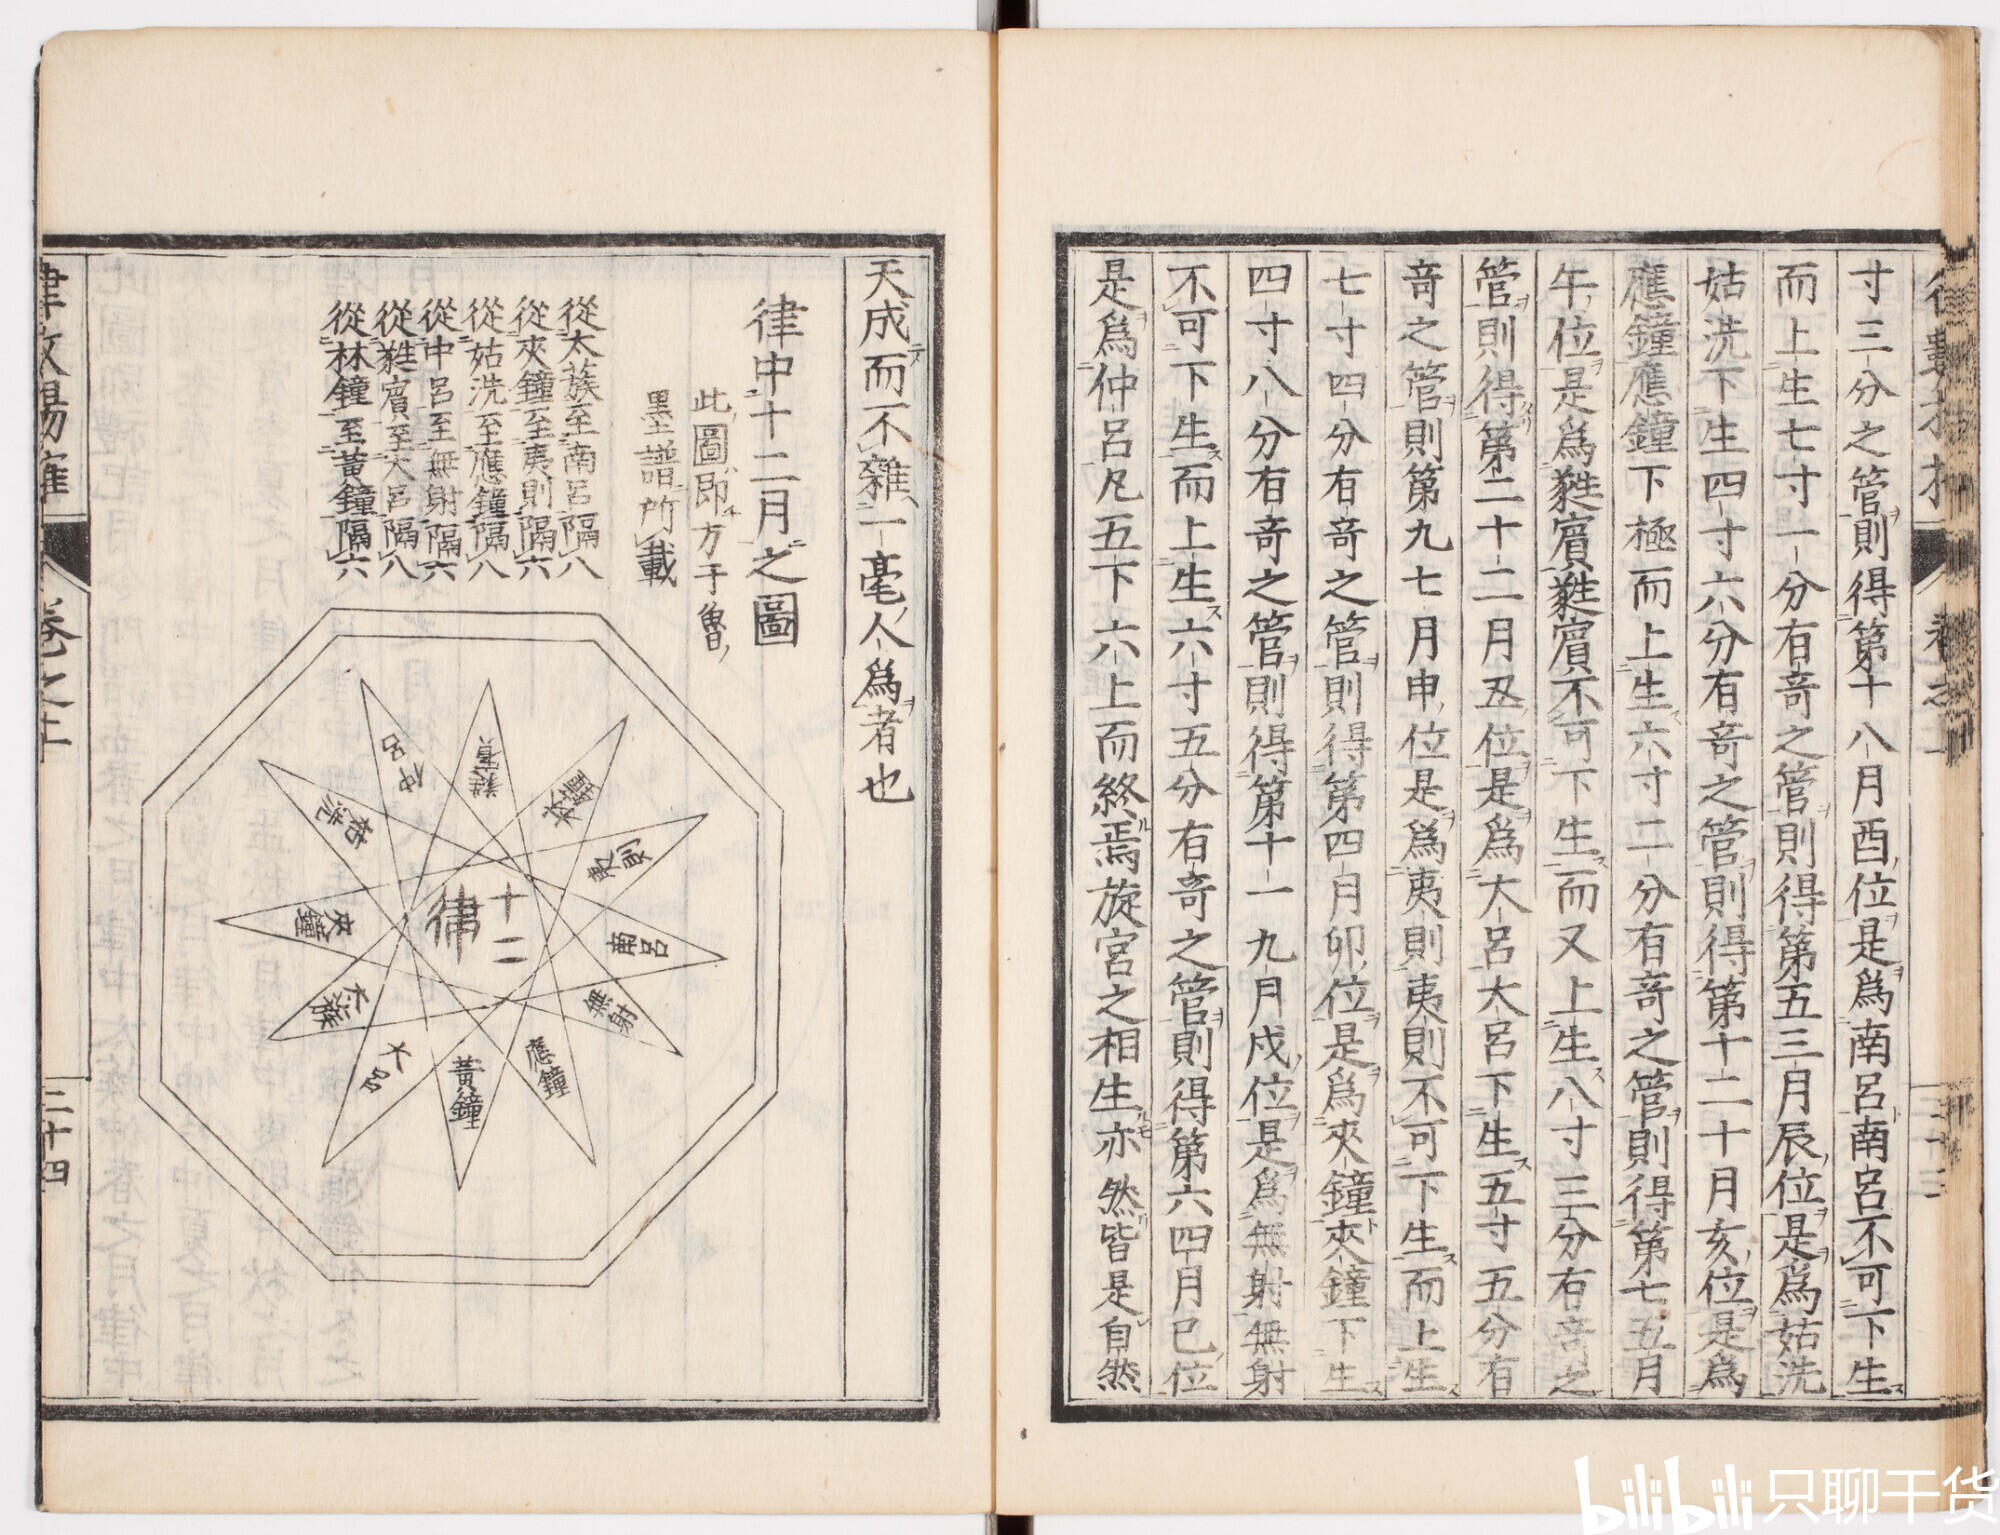 寸三分之管則得第十八月酉位是爲南呂南呂不可下生
而上生七寸一分有奇之管則得第五三月辰位是爲姑洗
姑洗下生四寸六分有奇之管則得第十二十月亥位是爲
應鐘應鐘下極而上生六寸二分有奇之管則得第七五月
午位是爲蕤賓蕤賓不可下生而又上生八寸三分右奇之
管則得第二十二月丑位是爲大呂大呂下生五寸五分有
奇之管則第九七月申位是爲夷則夷則不可下生而上生
七寸四分有奇之管則得第四月卯位是爲夾鐘夾鐘下生
四寸八分有奇之管則得第十一九月戌位是爲無射無射
不可下生而上生六寸五分有奇之管則得第六四月巳位
是爲仲呂凡五下六上而終焉旋宮之相生亦然皆是自然
天成而不雜一毫人爲者也
律中十二月之圖
此圖即方于魯
墨譜所載
從太蔟至南呂隔八
從夾鐘至夷則隔六
從姑洗至應鐘隔八
從中呂至無射隔六
從蕤賓至大呂隔八
從林鐘至黃鐘隔六
十二
律
黃鐘
大呂
太蔟
夾鐘
姑洗
仲呂
蕤賓
林鐘
夷則
南呂
無射
應鐘
卷之十
二十四
bilibili 只聊干货